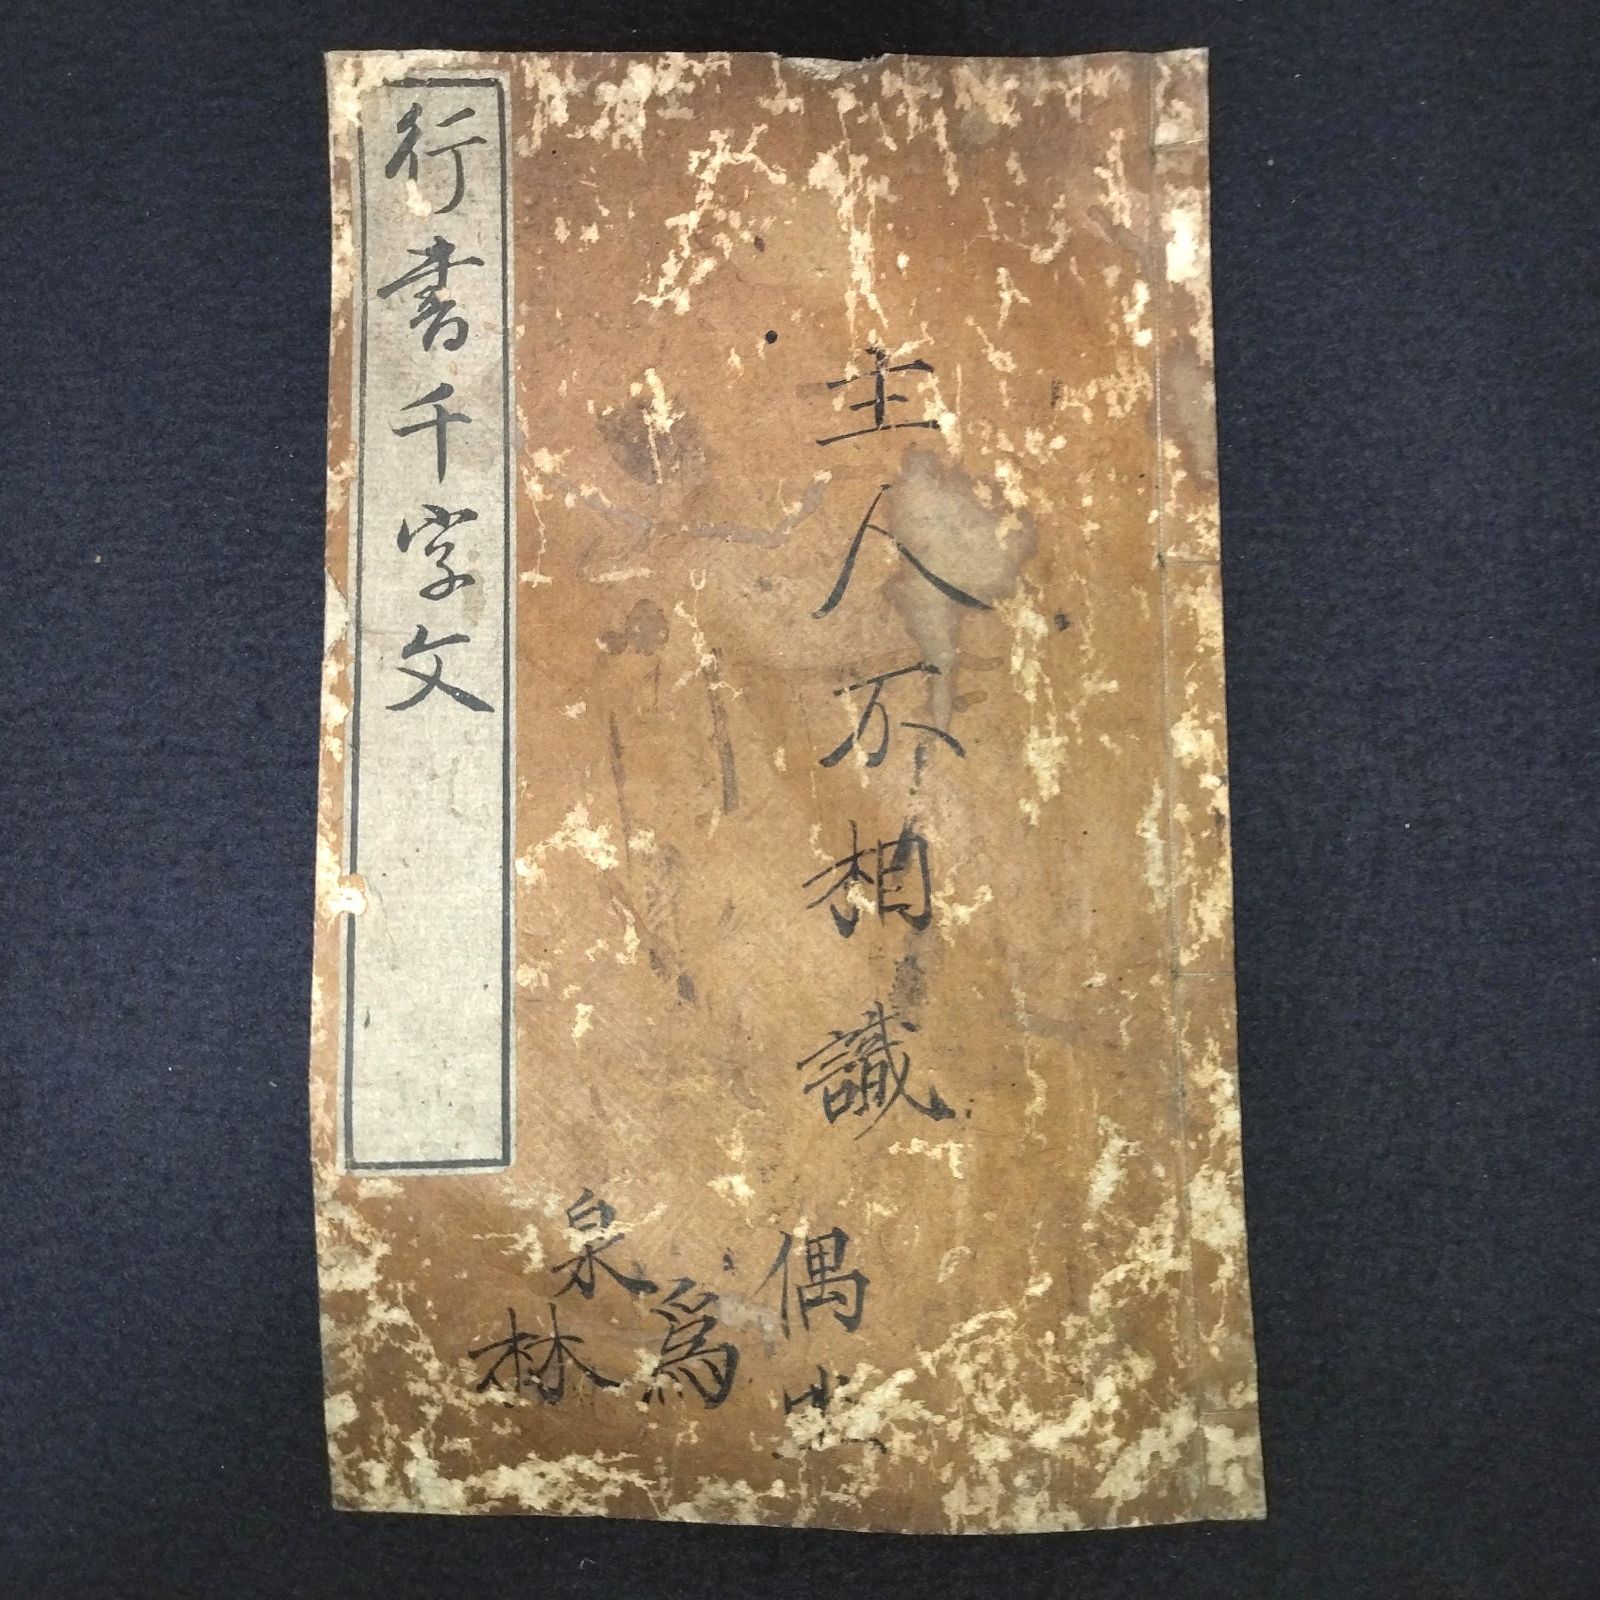 主人不相識
偶坐
爲
泉林
行書千字文